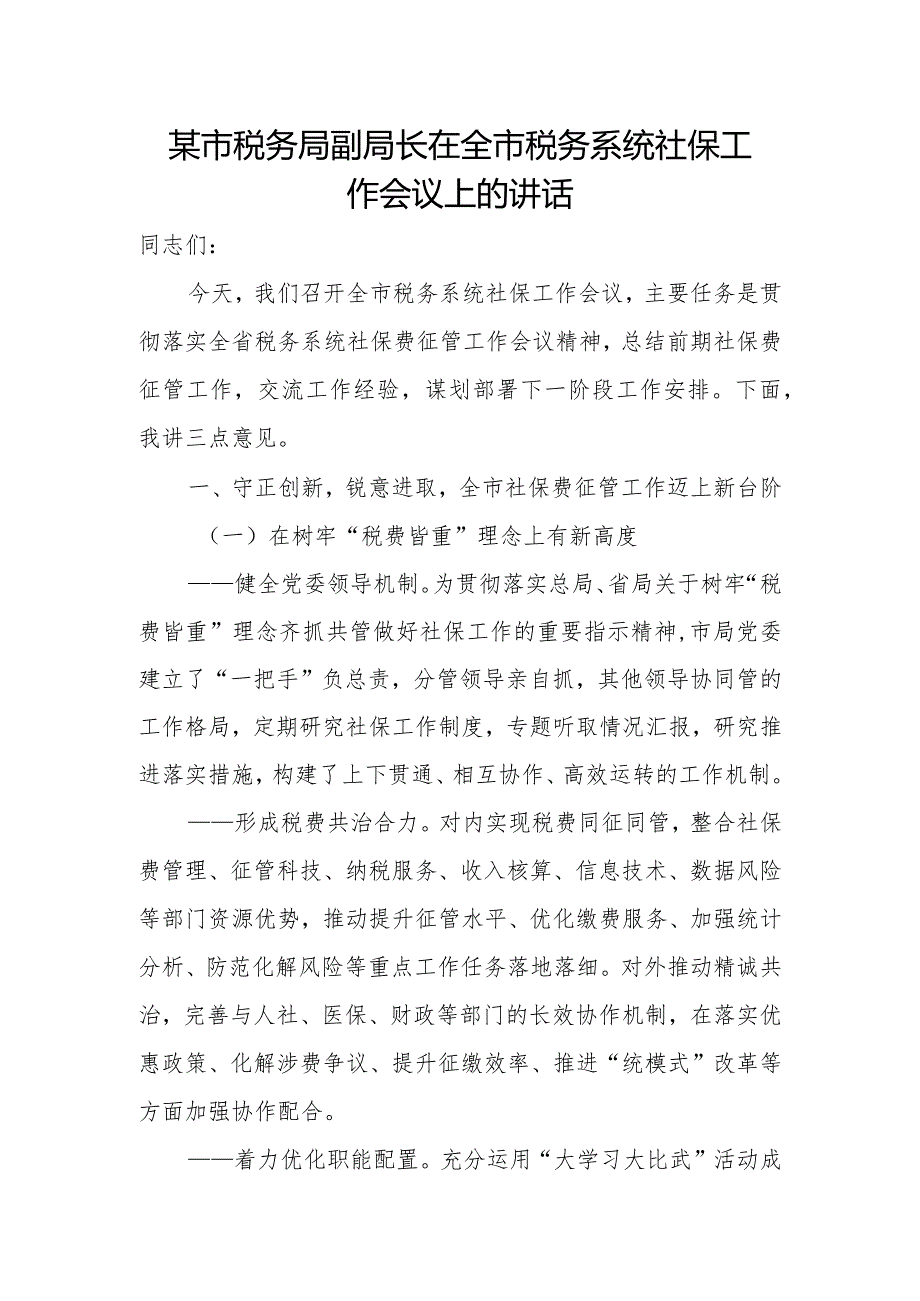 某市税务局副局长在全市税务系统社保工
作会议上的讲话
同志们：
今天，我们召开全市税务系统社保工作会议，主要任务是贯
彻落实全省税务系统社保费征管工作会议精神，总结前期社保费
征管工作，交流工作经验，谋划部署下一阶段工作安排。下面，
我讲三点意见。
一、守正创新，锐意进取，全市社保费征管工作迈上新台阶
（一）在树牢“税费皆重”理念上有新高度
——健全党委领导机制。为贯彻落实总局、省局关于树牢“税
费皆重”理念齐抓共管做好社保工作的重要指示精神,市局党委
建立了“一把手”负总责，分管领导亲自抓，其他领导协同管的
工作格局，定期研究社保工作制度，专题听取情况汇报，研究推
进落实措施，构建了上下贯通、相互协作、高效运转的工作机制。
——形成税费共治合力。对内实现税费同征同管，整合社保
费管理、征管科技、纳税服务、收入核算、信息技术、数据风险
等部门资源优势，推动提升征管水平、优化缴费服务、加强统计
分析、防范化解风险等重点工作任务落地落细。对外推动精诚共
治，完善与人社、医保、财政等部门的长效协作机制，在落实优
惠政策、化解涉费争议、提升征缴效率、推进“统模式”改革等
方面加强协作配合。
——着力优化职能配置。充分运用“大学习大比武”活动成